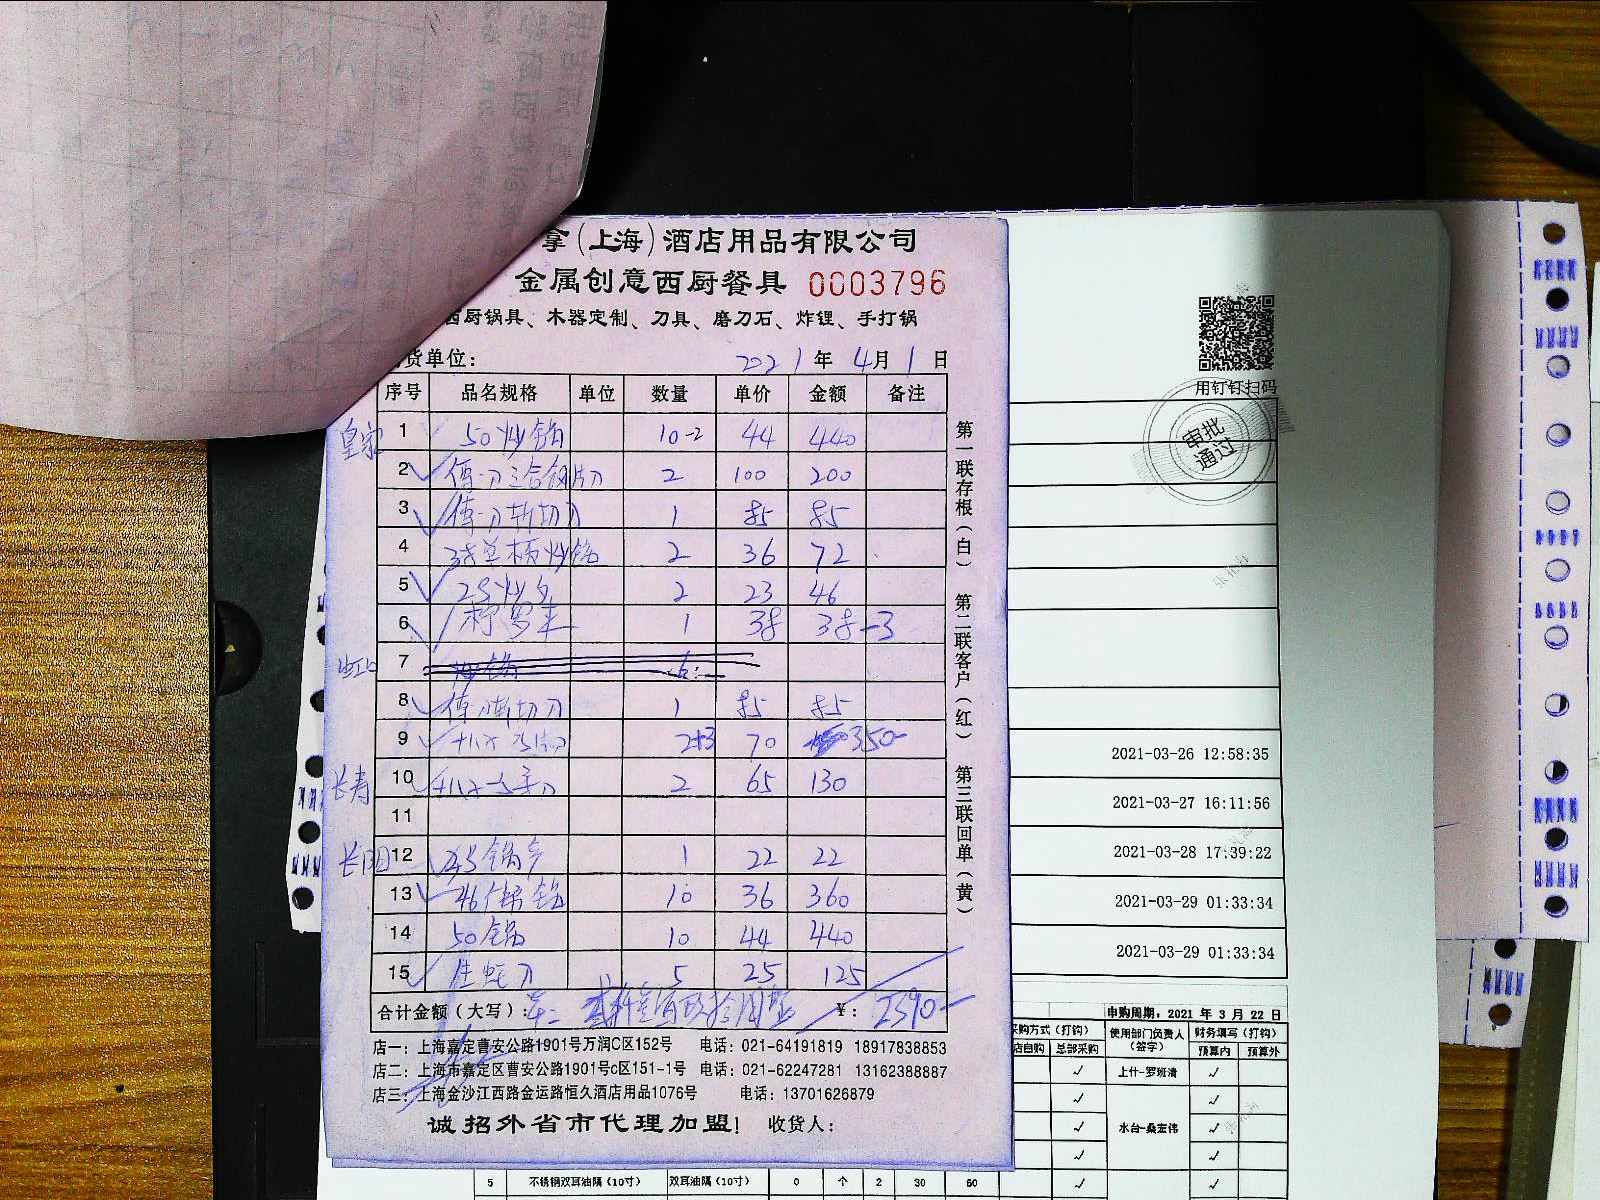 拿(上海)酒店用品有限公司
金属创意西厨餐具 0003796
西厨锅具、木器定制、刀具、磨刀石、炸锂、手打锅
货单位: 2021年4月1日
序号 品名规格 单位 数量 单价 金额 备注
皇家 1 50炒锅 10-2 44 440
2 三合钢片刀 2 100 200
3 斩切刀 1 85 85
4 单柄炒锅 2 36 72
5 2 23 46
6 1 38 38-3
7 炒锅
8 斩切刀 1 85 85
9 2+3 70 350-
长寿 10 2 65 130
11
长阳 12 锅 1 22 22
13 46 锅 10 36 360
14 50锅 10 44 440
15 生蚝刀 5 25 125
合计金额(大写): ¥: 2390-
店一: 上海嘉定曹安公路1901号万润C区152号 电话: 021-64191819 18917838853
店二: 上海市嘉定区曹安公路1901号c区151-1号 电话: 021-62247281 13162388887
店三: 上海金沙江西路金运路恒久酒店用品1076号 电话: 13701626879
诚招外省市代理加盟! 收货人:
第一联存根(白) 第二联客户(红) 第三联回单(黄)
用钉钉扫码
审批
通过
2021-03-26 12:58:35
2021-03-27 16:11:56
2021-03-28 17:39:22
2021-03-29 01:33:34
2021-03-29 01:33:34
申购周期: 2021 年 3 月 22 日
采购方式(打钩) 使用部门负责人(签字) 财务填写(打钩)
店自购 总部采购 预算内 预算外
✓ 上什-罗班清 ✓
✓ ✓
✓ 水台-桑宏伟 ✓
✓ ✓
5 不锈钢双耳油隔(10寸) 双耳油隔(10寸) 0 个 2 30 60 ✓ ✓